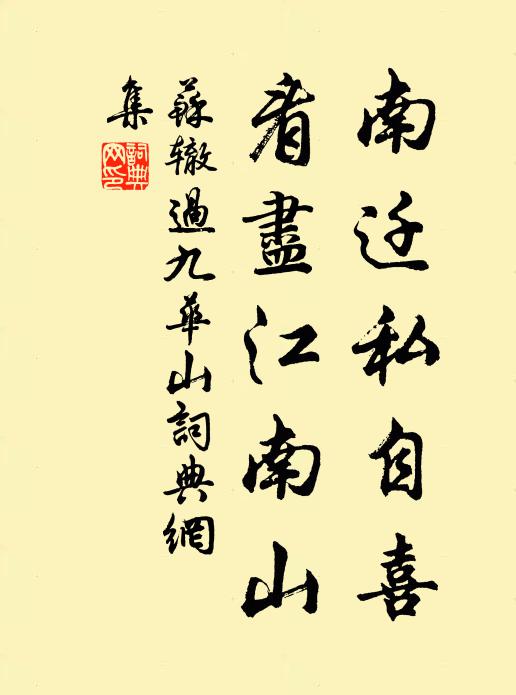 南迁私自喜
看盡江南山
蘇辙過九華山詞典網
集
詞典
网印